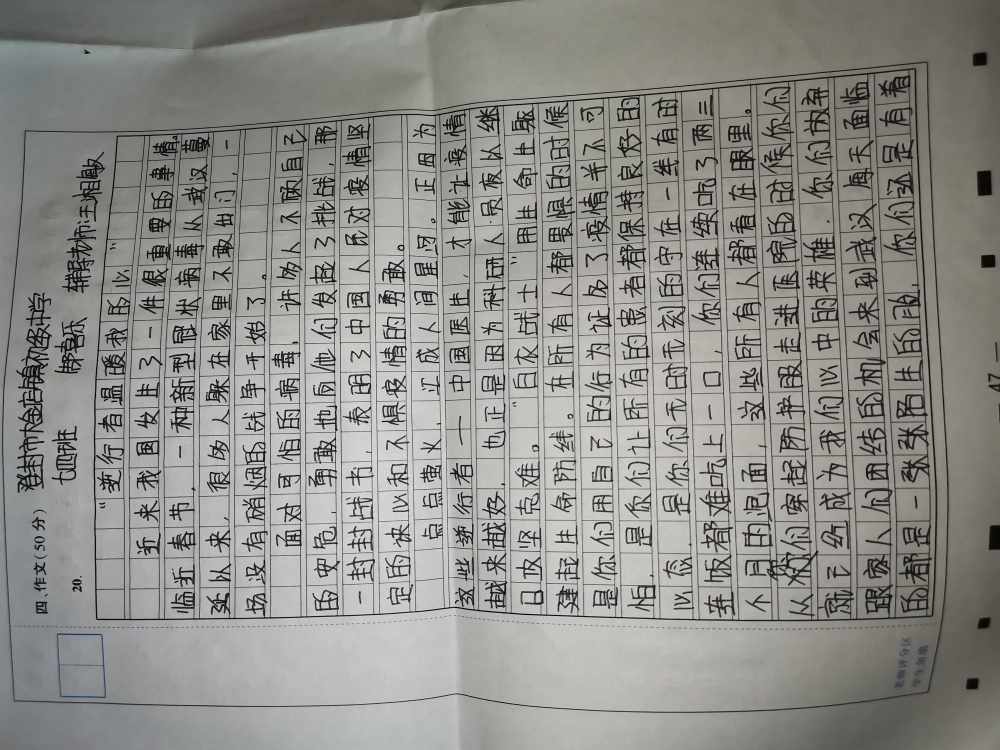 登封市大金店镇初级中学
九四班 辅导老师:王烟敏
四、作文(50分)
20.
“逆行者温暖我的心”
近来我国发生了一件很重要的事情。
临近春节,一种新型冠状病毒从武汉蔓
延以来,很多人躲在家里不敢出门,一
场没有硝烟的战争开始了。
面对可怕的病毒,许多人不顾自己
的安危,勇敢地向他们发起了挑战,那
一封封战书,表明了中国人民对疫情坚
定的决心和不惧疫情的勇敢。
点点萤火,汇成人间星河。正因为
这些逆行者——中国医生,才能让疫情
越来越好,也正是因为科研人员夜以继
日攻坚克难。“白衣战士”用生命
建起生命防线。在所有人都畏惧的时候
是你们用自己的行为证明了疫情并不可
怕,是你们让所有的患者都保持良好的
心态,是你们无时无刻的守在一线有的
连饭都难吃上一口,你们连续吃了两三
个月的泡面,这些所有人都看在眼里。
从你们穿起防护服走进医院的时候你们
就已经成为我们心中的英雄.你们放弃
跟家人们团结的机会来到武汉每天面临
的都是一张张陌生的脸,你们还是有着
47